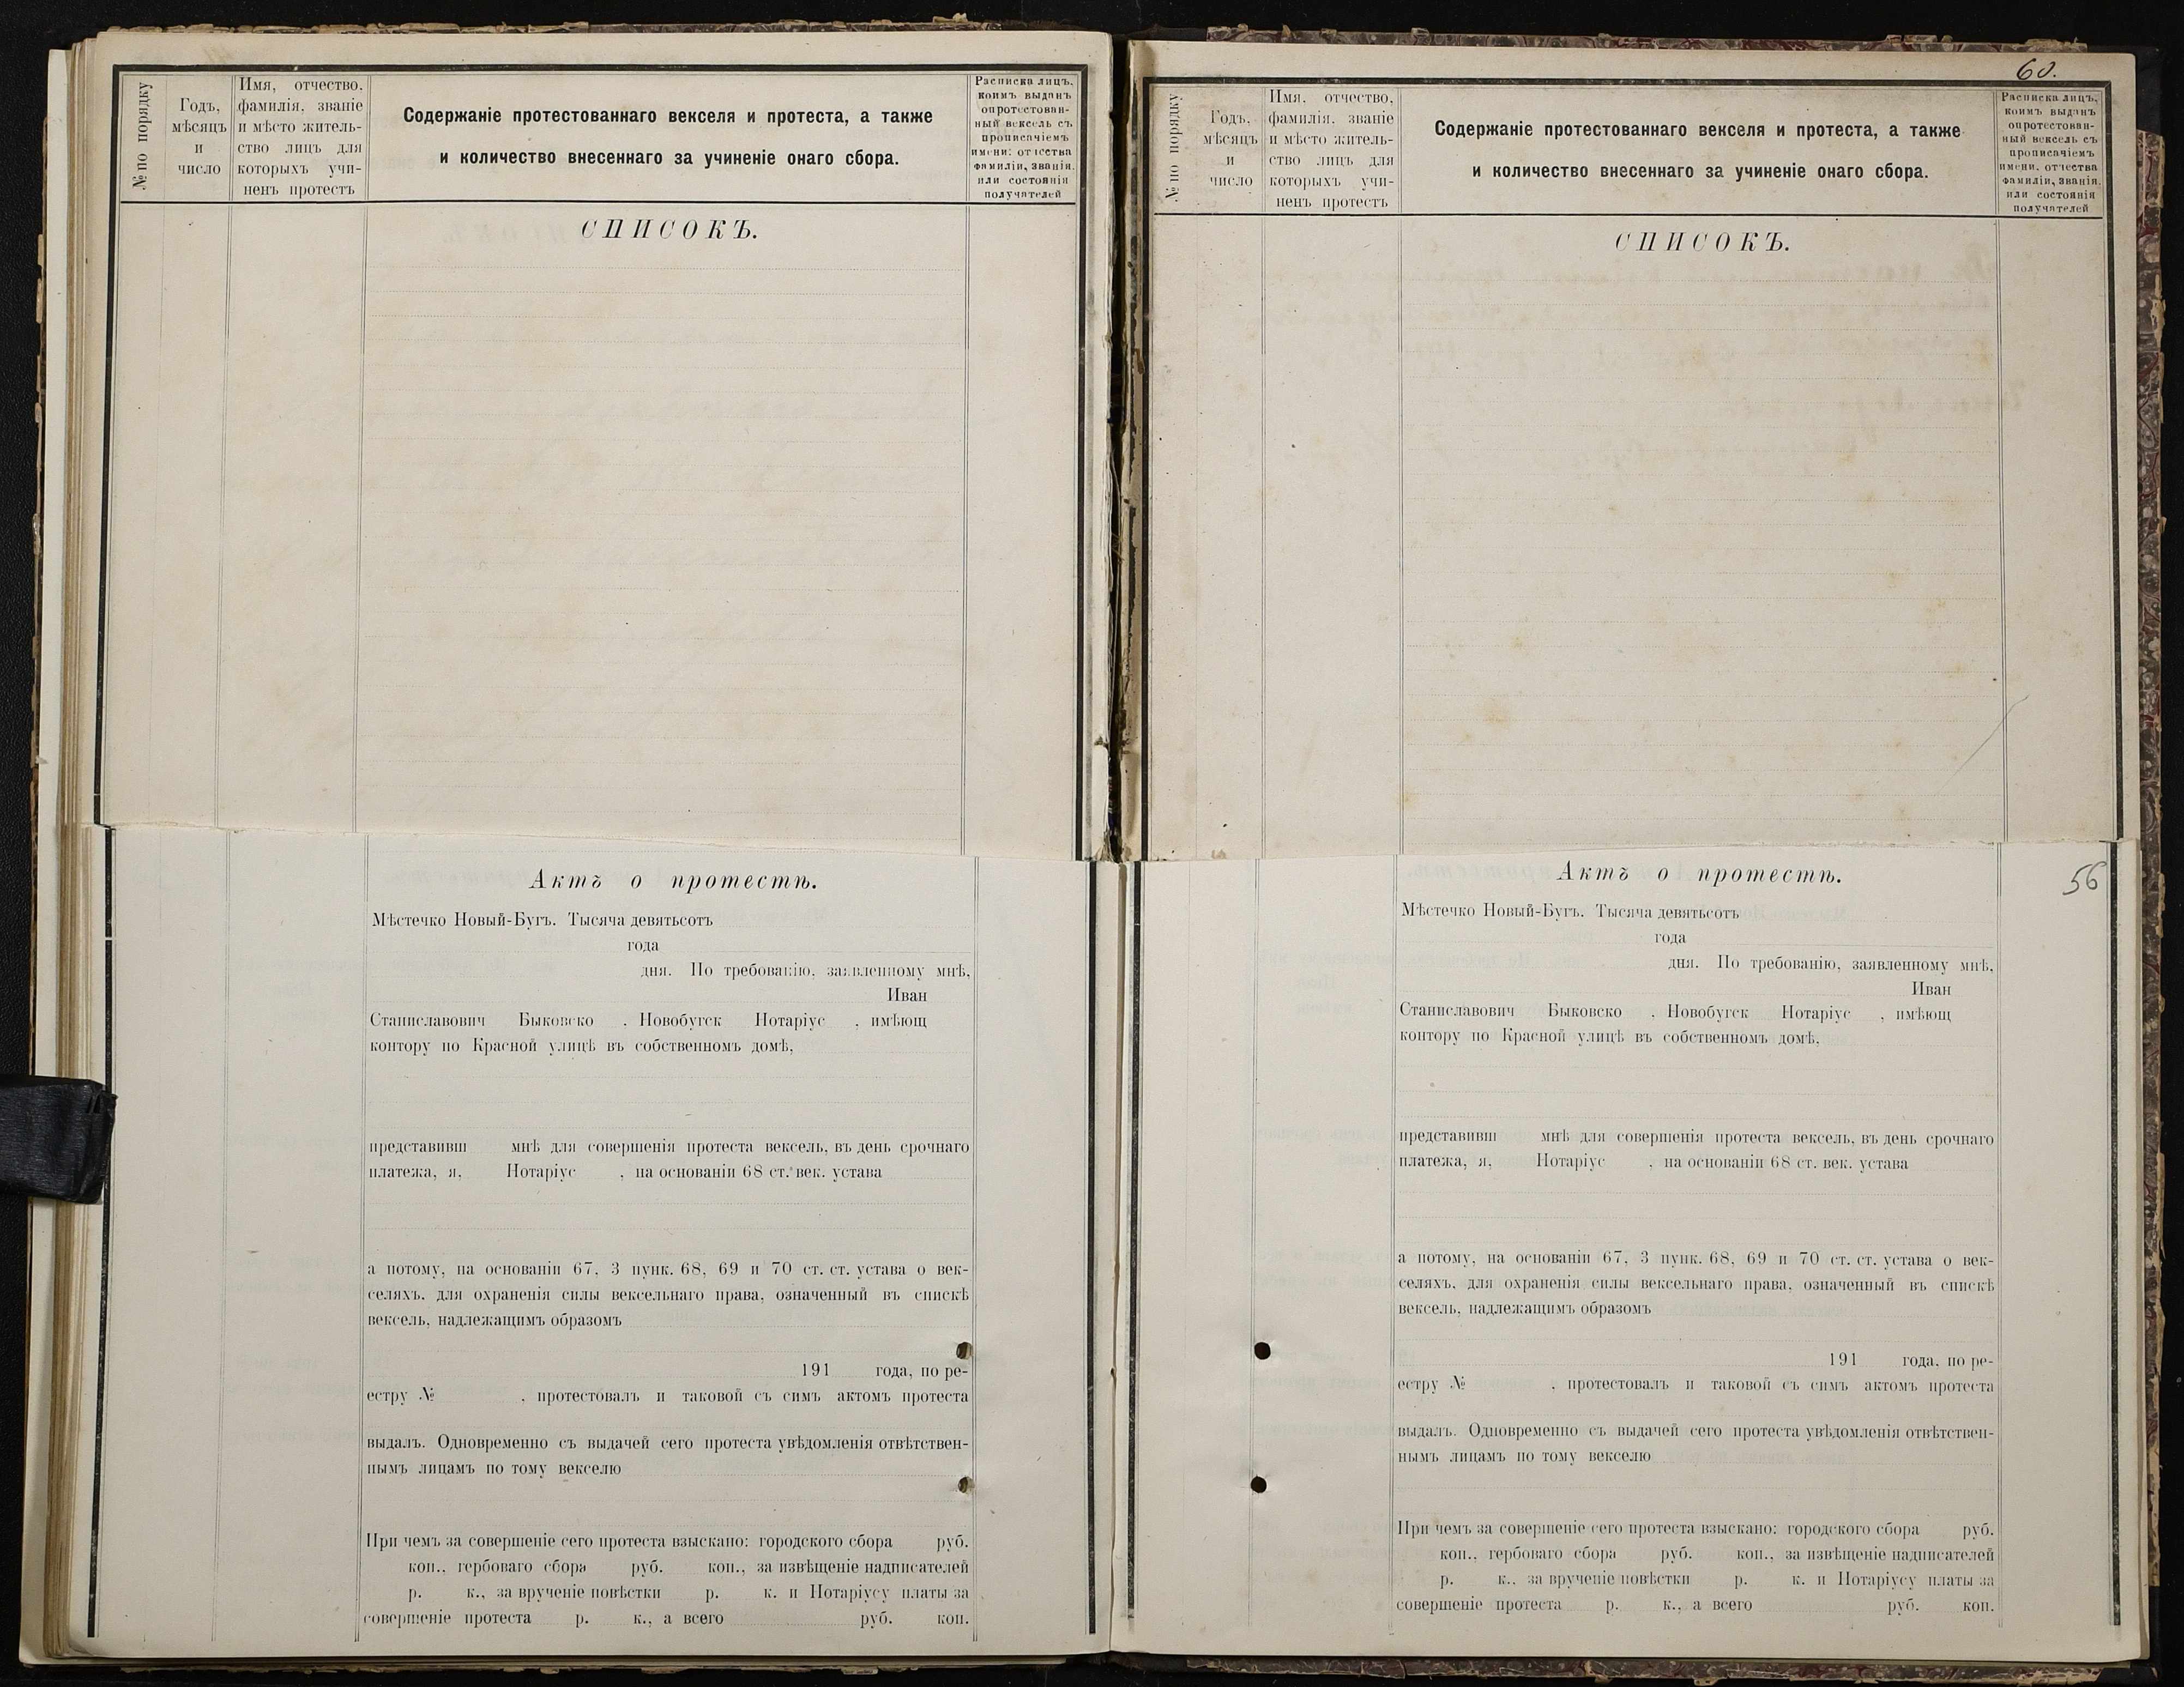 № по порядку
Годъ,
мѣсяцъ
и
число
Имя, отчество,
фамилія, званіе
и мѣсто житель-
ство лицъ для
которыхъ учи-
ненъ протестъ
Содержаніе протестованнаго векселя и протеста, а также
и количество внесеннаго за учиненіе онаго сбора.
Расписка лицъ,
коимъ выданъ
опротестован-
ный вексель съ
прописаніемъ
имени, отчества
фамиліи, званія,
или состоянія
получателей
СПИСОКЪ.
Актъ о протестѣ.
Мѣстечко Новый-Бугъ. Тысяча девятьсотъ
года
дня. По требованію, заявленному мнѣ,
Иван
Станиславович Быковско , Новобугск Нотаріус , имѣющ
контору по Красной улицѣ въ собственномъ домѣ,
представивш мнѣ для совершенія протеста вексель, въ день срочнаго
платежа, я, Нотаріус , на основаніи 68 ст. век. устава
а потому, на основаніи 67, 3 пунк. 68, 69 и 70 ст. ст. устава о век-
селяхъ, для охраненія силы вексельнаго права, означенный въ спискѣ
вексель, надлежащимъ образомъ
191 года, по ре-
естру № , протестовалъ и таковой съ симъ актомъ протеста
выдалъ. Одновременно съ выдачей сего протеста увѣдомленія отвѣтствен-
нымъ лицамъ по тому векселю
При чемъ за совершеніе сего протеста взыскано: городского сбора руб.
коп., гербоваго сбора руб. коп., за извѣщеніе надписателей
р. к., за врученіе повѣстки р. к. и Нотаріусу платы за
совершеніе протеста р. к., а всего руб. коп.
60.
№ по порядку
Годъ,
мѣсяцъ
и
число
Имя, отчество,
фамилія, званіе
и мѣсто житель-
ство лицъ для
которыхъ учи-
ненъ протестъ
Содержаніе протестованнаго векселя и протеста, а также
и количество внесеннаго за учиненіе онаго сбора.
Расписка лицъ,
коимъ выданъ
опротестован-
ный вексель съ
прописаніемъ
имени, отчества
фамиліи, званія,
или состоянія
получателей
СПИСОКЪ.
56
Актъ о протестѣ.
Мѣстечко Новый-Бугъ. Тысяча девятьсотъ
года
дня. По требованію, заявленному мнѣ,
Иван
Станиславович Быковско , Новобугск Нотаріус , имѣющ
контору по Красной улицѣ въ собственномъ домѣ,
представивш мнѣ для совершенія протеста вексель, въ день срочнаго
платежа, я, Нотаріус , на основаніи 68 ст. век. устава
а потому, на основаніи 67, 3 пунк. 68, 69 и 70 ст. ст. устава о век-
селяхъ, для охраненія силы вексельнаго права, означенный въ спискѣ
вексель, надлежащимъ образомъ
191 года, по ре-
естру № , протестовалъ и таковой съ симъ актомъ протеста
выдалъ. Одновременно съ выдачей сего протеста увѣдомленія отвѣтствен-
нымъ лицамъ по тому векселю
При чемъ за совершеніе сего протеста взыскано: городского сбора руб.
коп., гербоваго сбора руб. коп., за извѣщеніе надписателей
р. к., за врученіе повѣстки р. к. и Нотаріусу платы за
совершеніе протеста р. к., а всего руб. коп.